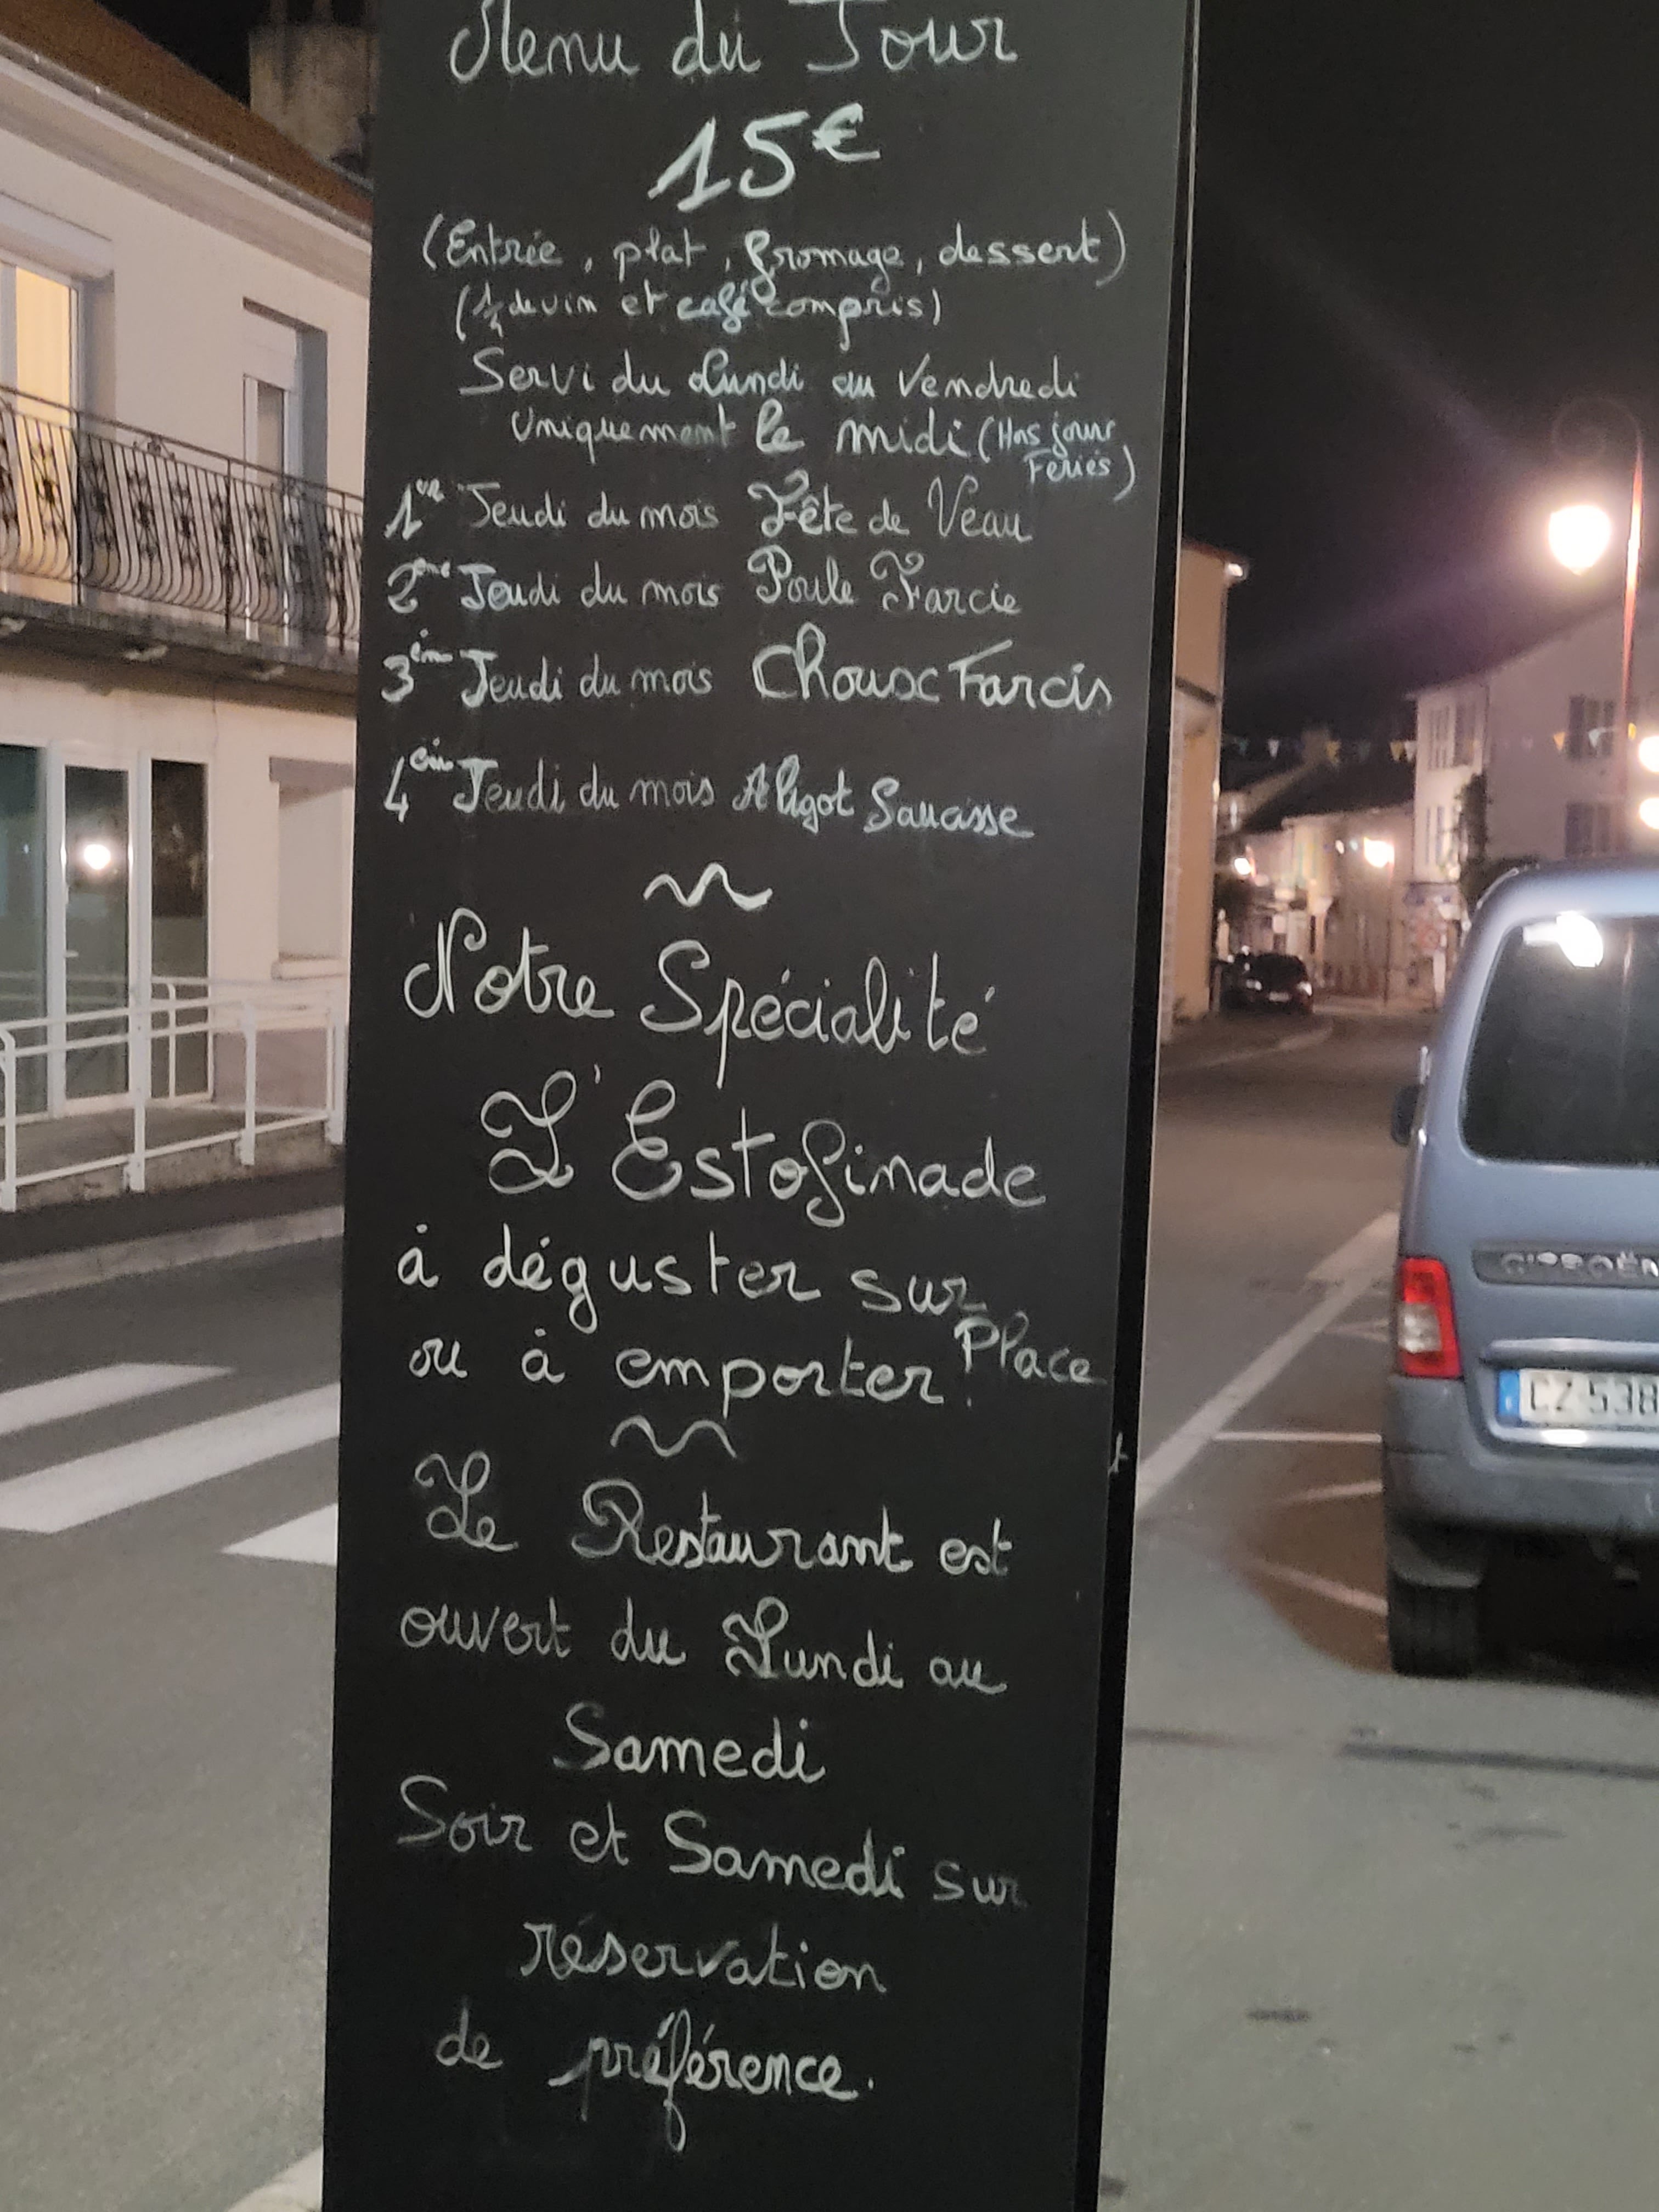 Menu du Jour
15€
(Entrée, plat, fromage, dessert)
(1/4 de vin et café compris)
Servi du Lundi au Vendredi
Uniquement le midi (Hors jours
Feriés)
1er Jeudi du mois Tête de Veau
2ème Jeudi du mois Poule Farcie
3ème Jeudi du mois Choux Farcis
4ème Jeudi du mois Aligot Saucisse
Notre Spécialité
L'Estofinade
à déguster sur
Place
ou à emporter.
Le Restaurant est
ouvert du Lundi au
Samedi
Soir et Samedi sur
réservation
de préférence.
CITROËN
CZ 538